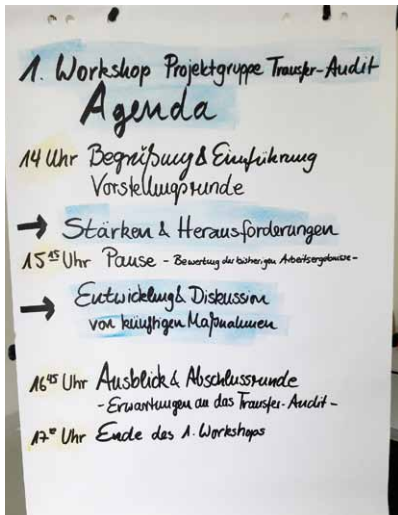 1. Workshop Projektgruppe Transfer-Audit
Agenda
14 Uhr Begrüßung & Einführung
Vorstellungsrunde
→ Stärken & Herausforderungen
15¹⁵ Uhr Pause - Bewertung der bisherigen Arbeitsergebnisse -
→ Entwicklung & Diskussion
von künftigen Maßnahmen
16⁴⁵ Uhr Ausblick & Abschlussrunde
- Erwartungen an das Transfer-Audit -
17⁰⁰ Uhr Ende des 1. Workshops